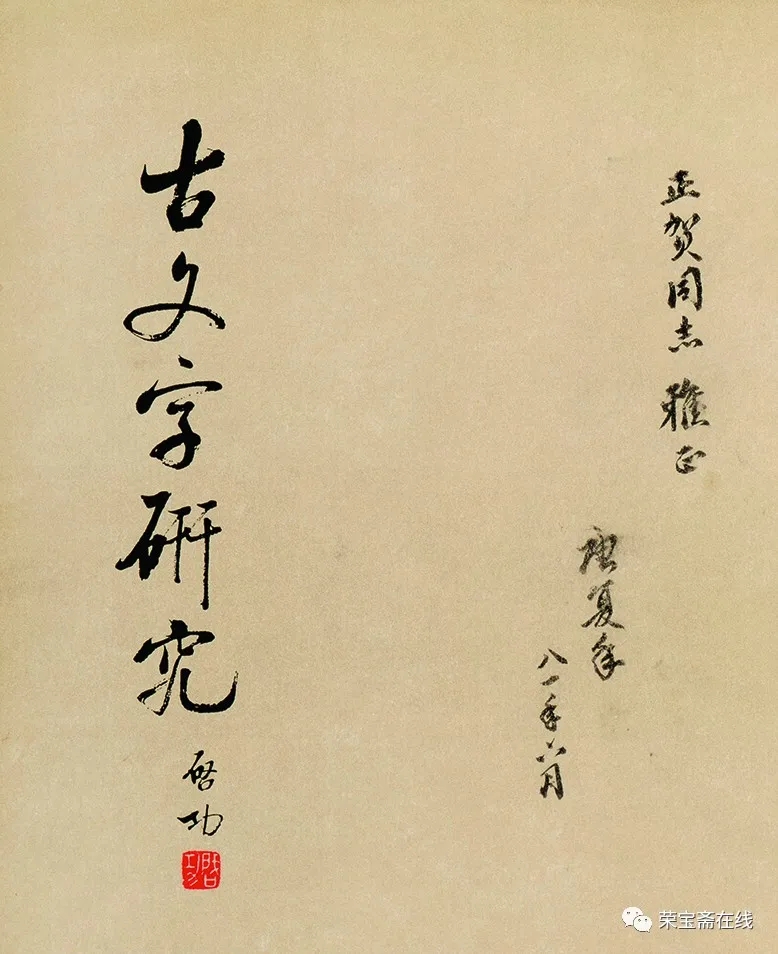 正贺同志 雅正
唐复年
八一年六月
古文字研究
启功
荣宝斋在线